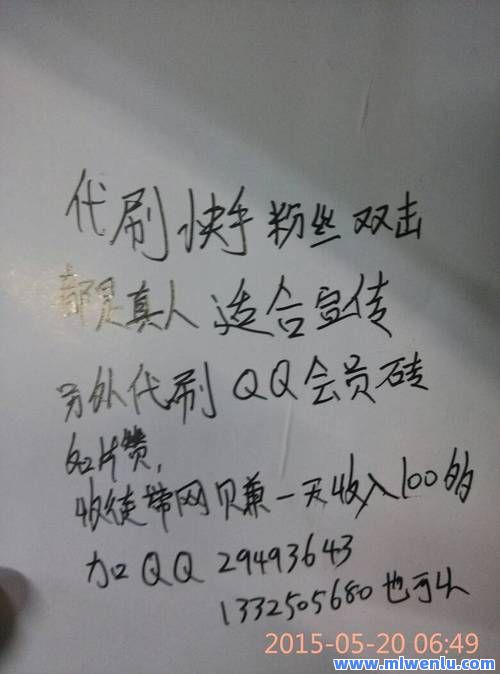 代刷快手粉丝双击
都是真人 适合宣传
另外代刷 QQ会员砖
名片赞，
收徒带网贝兼一天收入100多
加QQ 29493643
1332505680也可以
2015-05-20 06:49
www.miwenlu.com